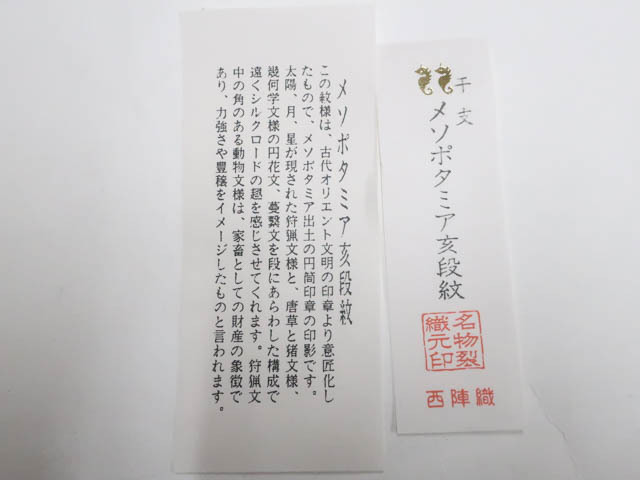 メソポタミア亥段紋
この紋様は、古代オリエント文明の印章より意匠化し
たもので、メソポタミア出土の円筒印章の印影です。
太陽、月、星が現された狩猟文様と、唐草と猪文様、
幾何学文様の円花文、蔓繋文を段にあらわした構成で
遠くシルクロードの趣を感じさせてくれます。狩猟文
中の角のある動物文様は、家畜としての財産の象徴で
あり、力強さや豊穣をイメージしたものと言われます。
干支
メソポタミア亥段紋
名物裂
織元印
西陣織